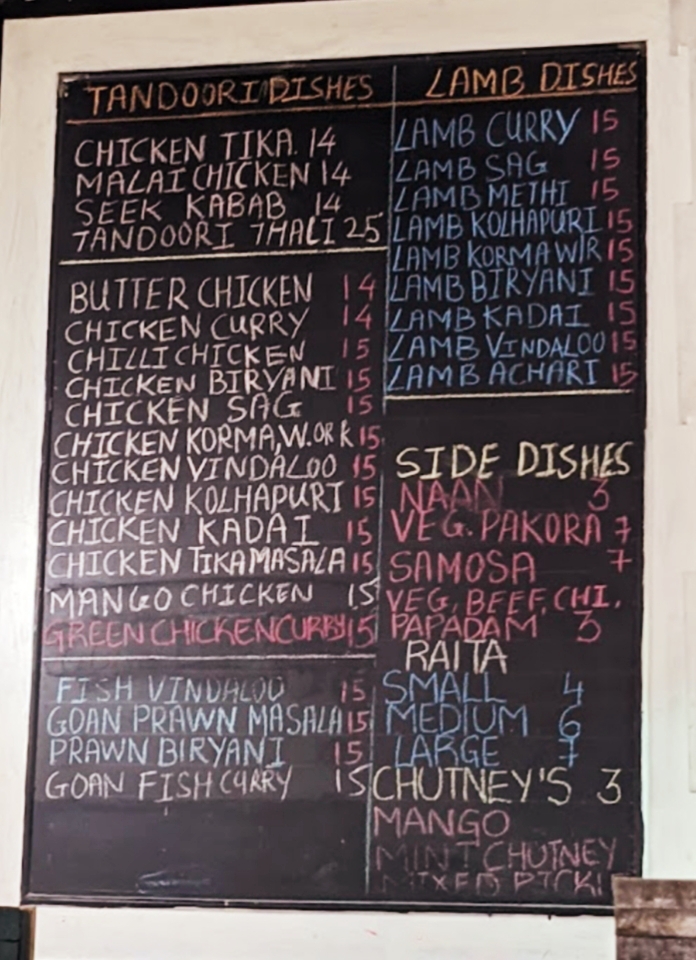 TANDOORI DISHES
CHICKEN TIKA. 14
MALAI CHICKEN 14
SEEK KABAB 14
TANDOORI THALI 25
BUTTER CHICKEN 14
CHICKEN CURRY 14
CHILLI CHICKEN 15
CHICKEN BIRYANI 15
CHICKEN SAG 15
CHICKEN KORMA, W. OR R 15
CHICKEN VINDALOO 15
CHICKEN KOLHAPURI 15
CHICKEN KADAI 15
CHICKEN TIKA MASALA 15
MANGO CHICKEN 15
GREEN CHICKEN CURRY 15
FISH VINDALOO 15
GOAN PRAWN MASALA 15
PRAWN BIRYANI 15
GOAN FISH CURRY 15
LAMB DISHES
LAMB CURRY 15
LAMB SAG 15
LAMB METHI 15
LAMB KOLHAPURI 15
LAMB KORMA W/R 15
LAMB BIRYANI 15
LAMB KADAI 15
LAMB VINDALOO 15
LAMB ACHARI 15
SIDE DISHES
NAAN 3
VEG. PAKORA 7
SAMOSA 7
VEG, BEEF, CHI.
PAPADAM 3
RAITA
SMALL 4
MEDIUM 6
LARGE 7
CHUTNEY'S 3
MANGO
MINT CHUTNEY
MIXED PICKL